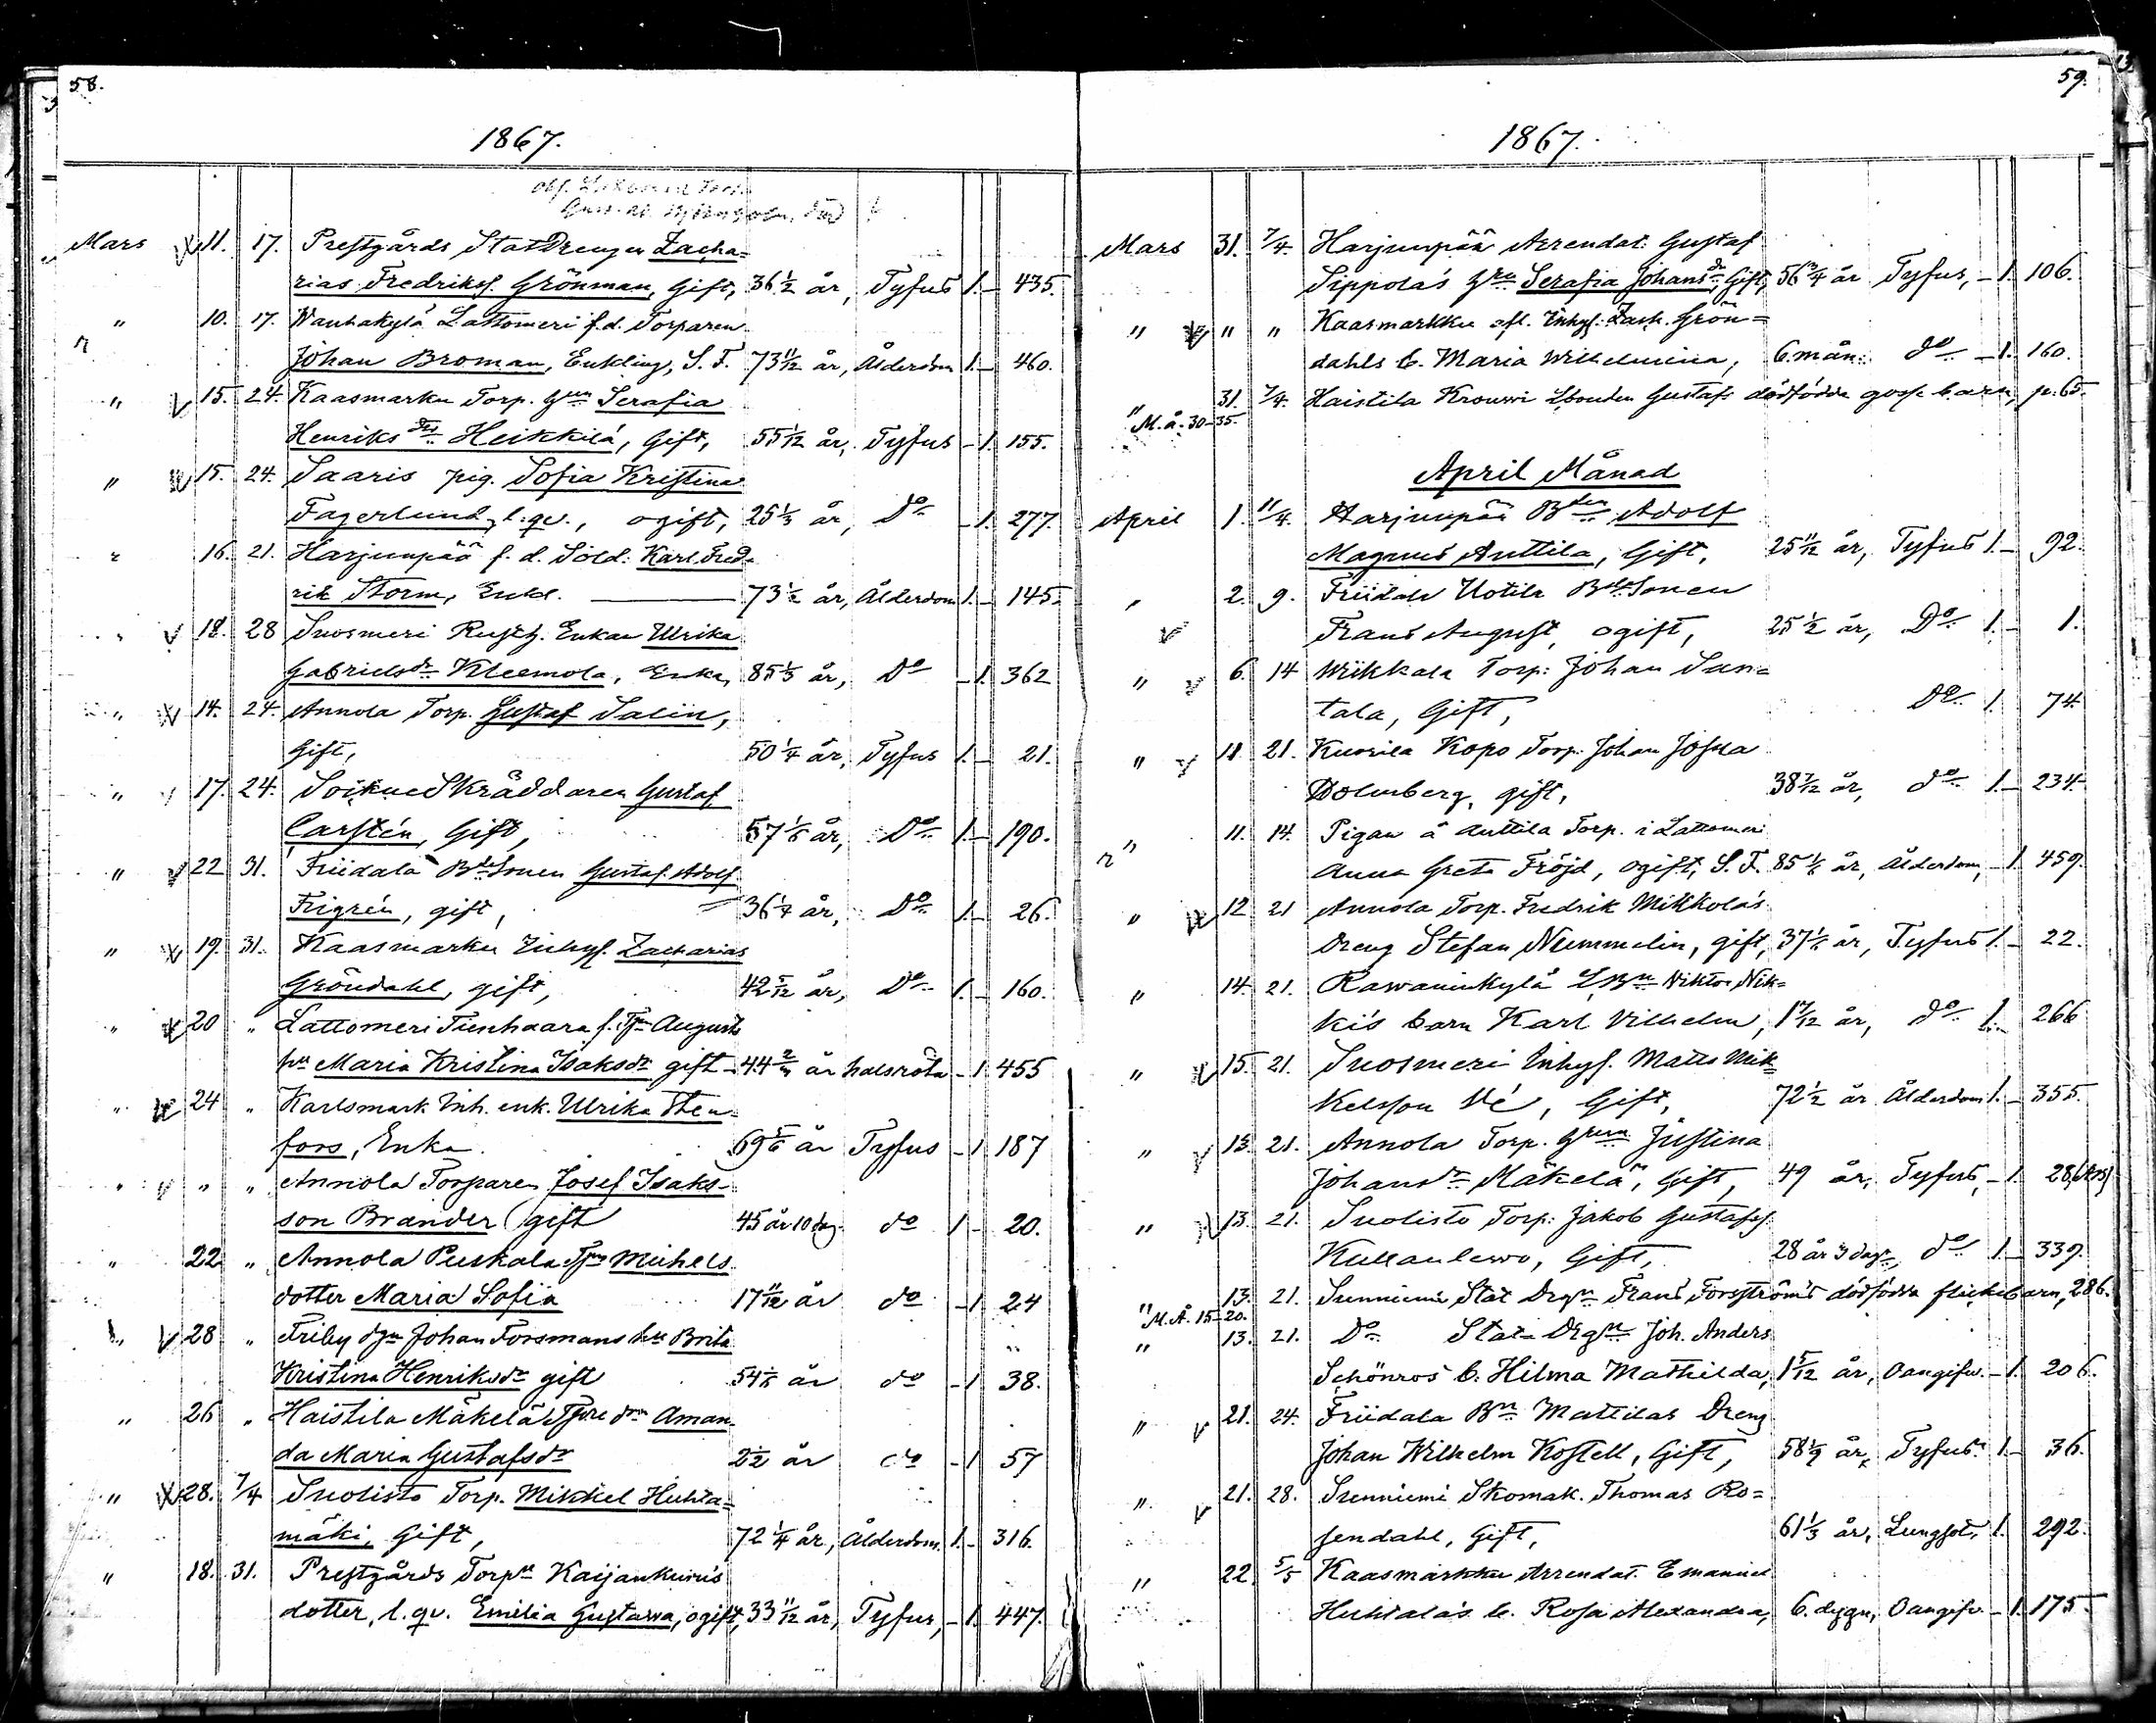 58.
1867.
Mars 11. 17. Prestgårds StatDrengen Zacha=
rias Fredriksf. Grönman, Gift, 36 1/2 år, Tyfus 1. – 435.
" 10. 17. Wanhakylä Lattomeri f.d. Torparen
Johan Broman, Enkling, S. F. 73 11/12 år, Ålderdom 1. – 460.
" 15. 24. Kaasmarku Torp. hun Serafia
Henriksdr Heikkilä, Gift, 55 1/12 år, Tyfus – 1. 155.
" 15. 24. Saaris pig. Sofia Kristina
Fagerlund, l. qv., ogift, 25 1/3 år, Do – 1. 277.
" 16. 21. Harjunpää f. d. Sold. Karl Fred=
rik Storm, Enkl. 73 1/2 år, Ålderdom 1. – 145.
" 18. 28 Suosmeri Rusth. Enkan Ulrika
Gabrielsdr Kleemola, Enka, 85 1/3 år, Do – 1. 362
" 14. 24. Annola Torp. Gustaf Salin,
Gift, 50 1/4 år, Tyfus 1. – 21.
" 17. 24. Skräddaren Gustaf
Carstén, Gift, 57 1/6 år, Do 1. – 190.
" 22 31. Friidala Bdesonen Gustaf Adolf
Frigrén, gift, 36 1/4 år, Do 1. – 26.
" 19. 31. Kaasmarku Inhys. Zacharias
Gröndahl, gift, 42 5/12 år, Do 1. – 160.
" 20 " Lattomeri August
hu Maria Kristina Isaksdr gift – 44 år halsröta – 1 455
" 24 " Karlsmark Inh. enk. Ulrika Sten
fors, Enka. 69 5/6 år Tyfus – 1 187
" " " Annola Torparen Josef Isaks
son Brander gift 45 år 10 dag. do 1 – 20.
" 22 " Annola Puskala Michels
dotter Maria Sofia 17 11/12 år do – 1 24
" 28 " Friby Johan Forsmans hu Brita
Kristina Henriksdr gift 54 1/6 år do – 1 38.
" 26 " Haistila Mäkelä Aman
da Maria Gustafsdr 2 1/2 år do – 1 57
" 28. 7/4 Suolisto Torp. Mikkel Huhta=
mäki, Gift, 72 1/4 år, Ålderdom. 1. – 316.
" 18. 31. Prestgårds Torps Kaijankuris
dotter, l. qv. Emilia Gustava, ogift, 33 11/12 år, Tyfus, – 1. 447.
59.
1867.
Mars 31. 7/4. Harjunpää Arrendat. Gustaf
Sippolas hu Serafia Johansdr, Gift, 56 3/4 år Tyfus, – 1. 106.
" " " Kaasmarkku afl. Inhys. Zach. Grön=
dahls b. Maria Wilhelmina, 6. mån. do – 1. 160.
" 31. 7/4. Haistila Krouwi Gustafs dödfödda gosse barn, p. 65.
M. å. 30–35.
April Månad
April 1. 11/4. Harjunpää Bden Adolf
Magnus Anttila, Gift, 25 11/12 år, Tyfus 1. – 92.
" 2. 9. Friidala Uotila BdeSonen
Frans August, ogift, 25 1/2 år, Do 1. – 1.
" 6. 14 Wiikkala Torp: Johan San=
tala, Gift, Do 1. 74.
" 11 21. Kuorila Kopo Torp. Johan Josua
Holmberg, gift, 38 7/12 år, do 1. – 234.
" 11. 14. Pigan å Anttila Torp. i Lattomeri
Anna Greta Fröjd, ogift, S. F. 85 1/6 år, Ålderdom, – 1. 459.
" 12 21 Annola Torp. Fredrik Mikkolas
Dreng Stefan Nummelin, gift, 37 1/6 år, Tyfus 1. – 22.
" 14. 21. Rawaninkylä Viktor Nik=
kis barn Karl Vilhelm, 1 7/12 år, do 1. – 266
" 15. 21. Suosmeri Inhys. Matts Mik
kelsson Wé, Gift, 72 1/2 år Ålderdom 1. – 355.
" 13. 21. Annola Torp. hun Justina
Johansdr Mäkelä, Gift, 49 år, Tyfus, – 1. 28.
" 13. 21. Suolisto Torp: Jakob Gustafss.
Kullanlewo, Gift, 28 år 3 dagr, do 1. – 339.
" 13. 21. Sunniemi Stat Drgn Frans Forsströms dödfödda flickebarn, 286.
M. Å. 15–20.
" 13. 21. Do Stat-Drgn Joh. Anders
Schönros b. Hilma Mathilda, 1 5/12 år, Oangifv. – 1. 206.
" 21. 24. Friidala Bn Mattilas Dreng
Johan Wilhelm Kostell, Gift, 58 1/9 år, Tyfus. 1. – 36.
" 21. 28. Sunniemi Skomak. Thomas Ro=
sendahl, Gift, 61 1/3 år, Lungsot, 1. 292.
" 22 5/5 Kaasmarkku Arrendat. Emanuel
Huhtalas b. Rosa Alexandra, 6. dygn, Oangifv. – 1. 175